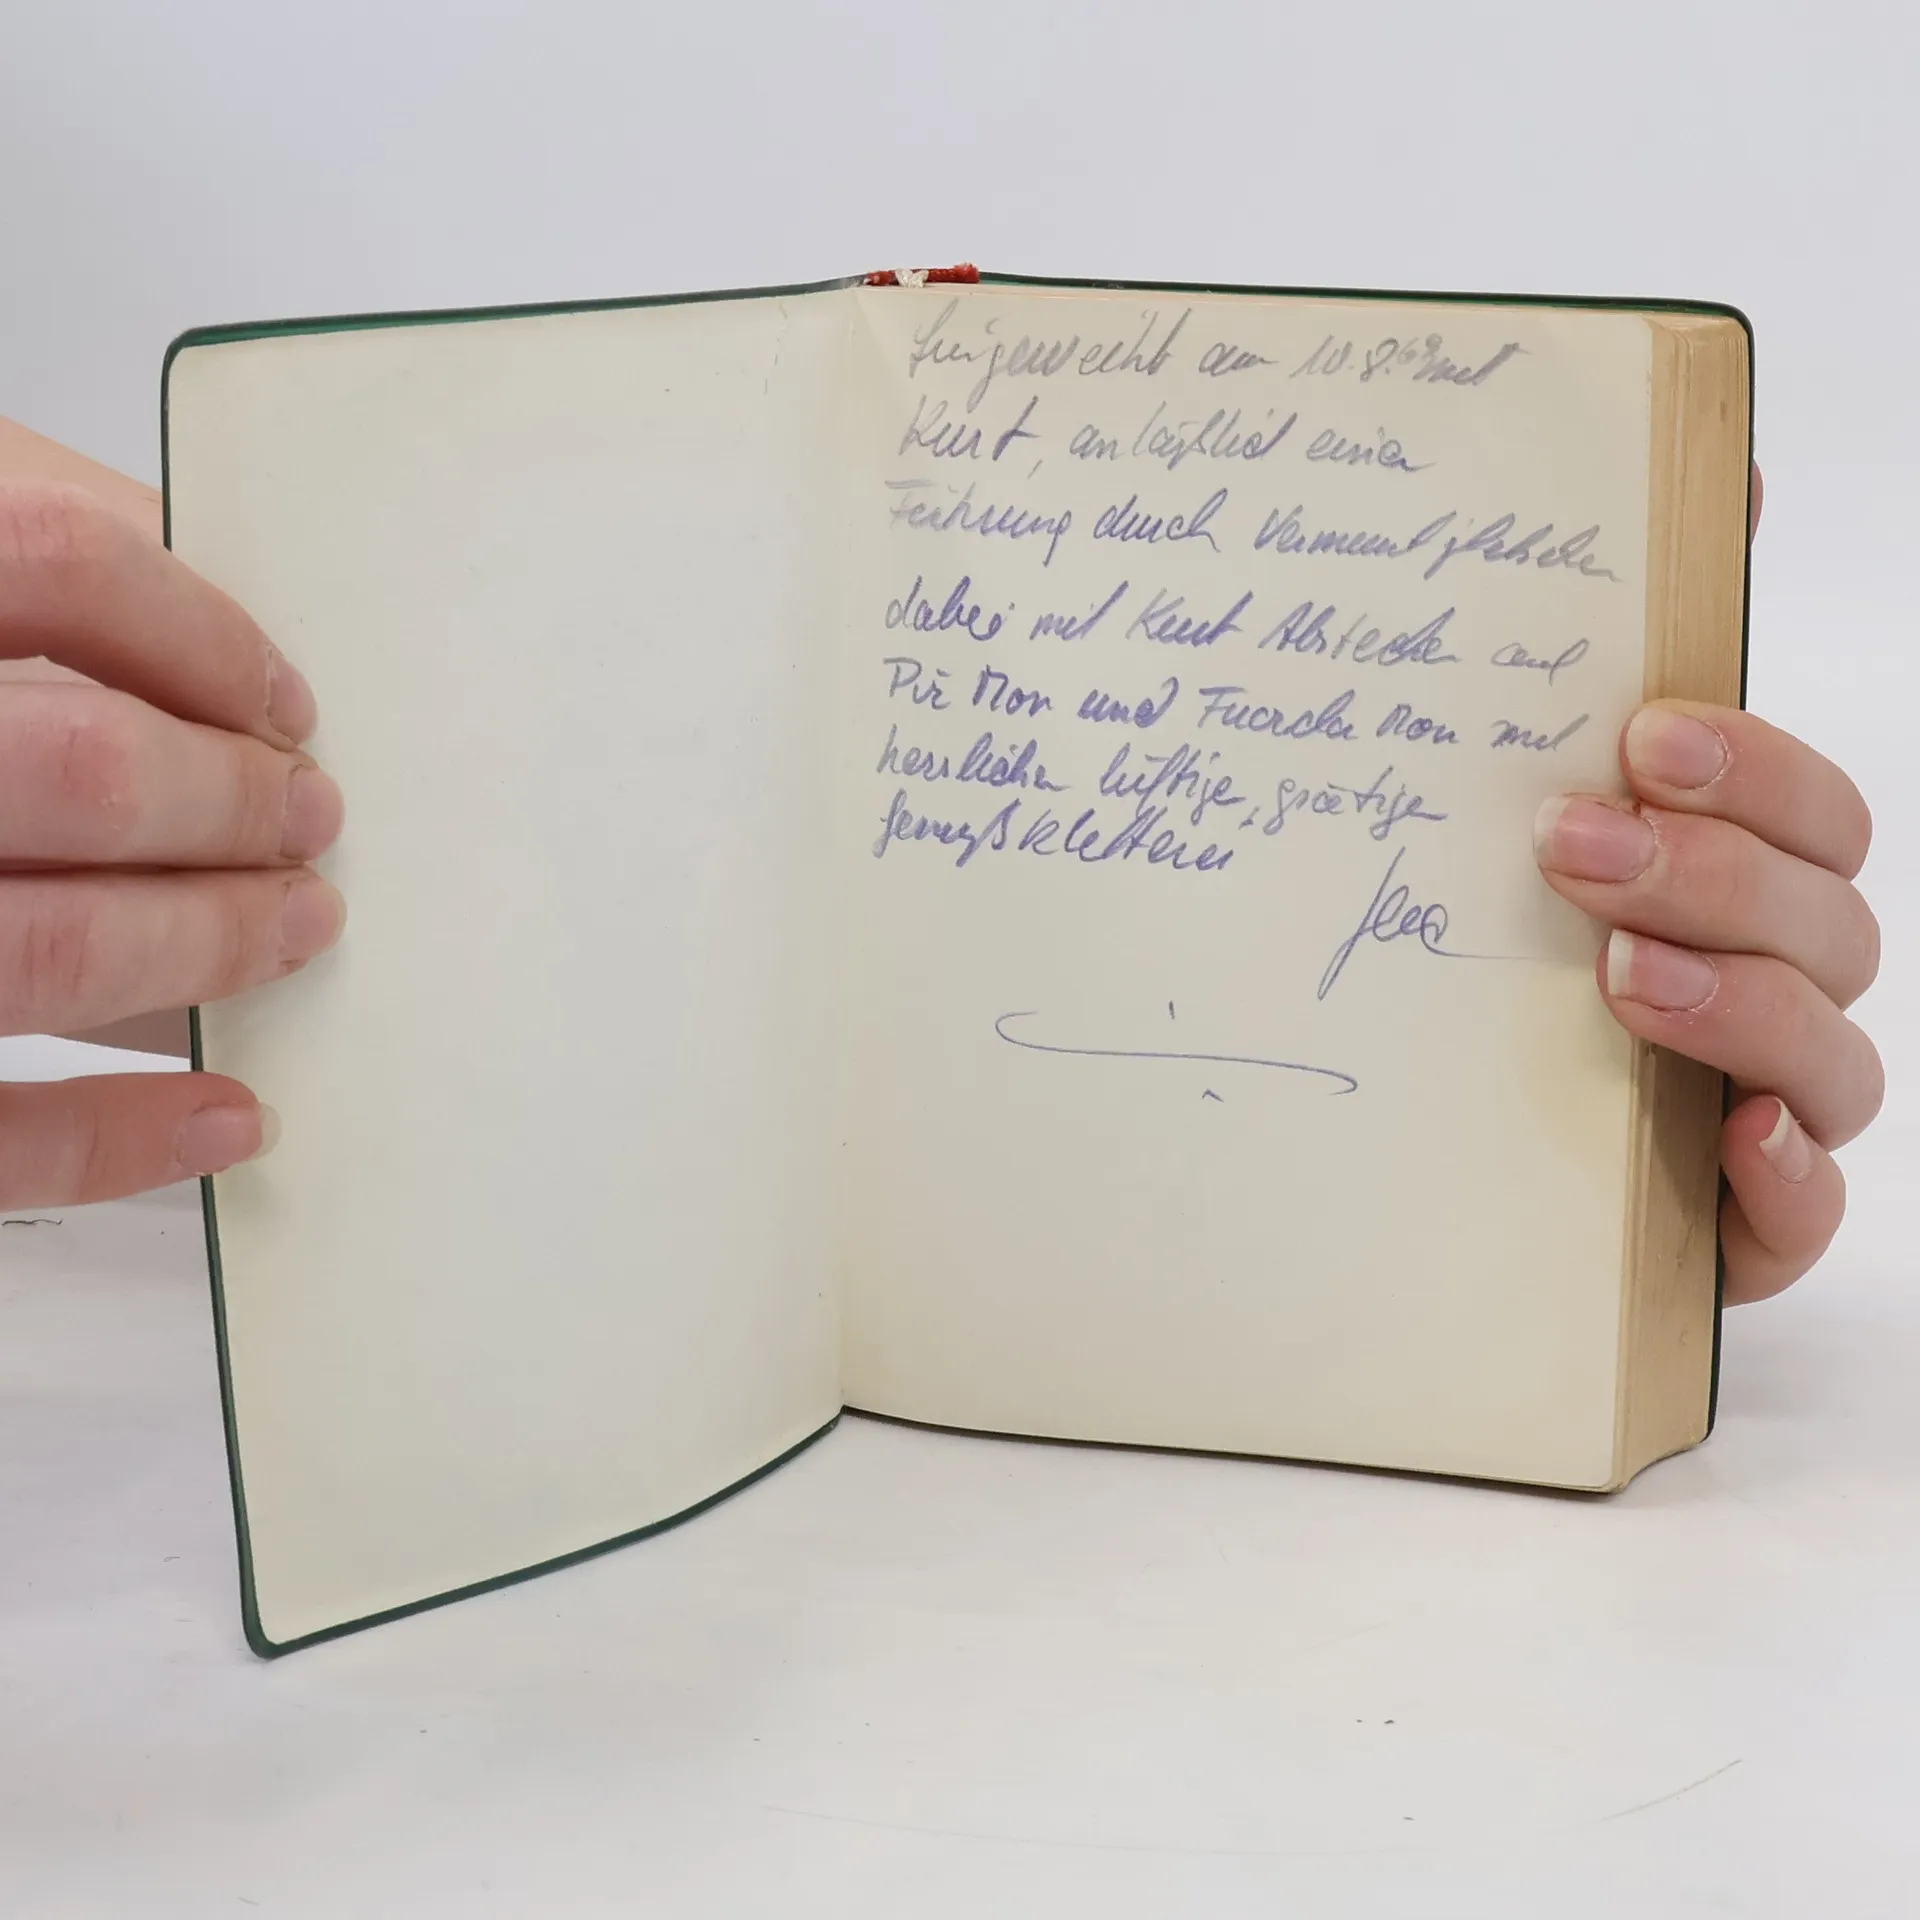 Eingeweiht am 10.8.69 mit
Kurt, anläßlich einer
Führung durch Vermuntgletscher
dabei mit Kurt Abstecher auf
Piz Mon und Fuorcla Mon mit
herrlicher luftiger, grätiger
Genußkletterei